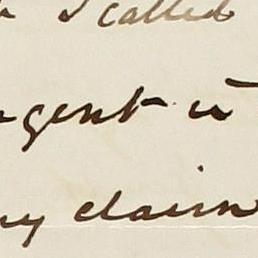 I called
agent in
my claim